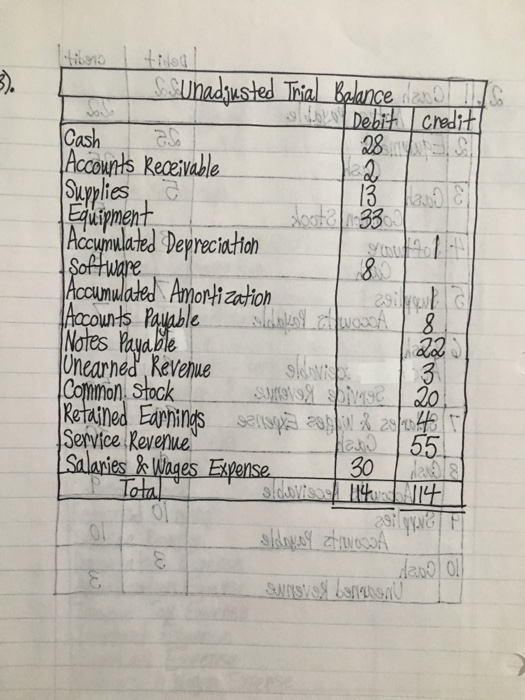 3).
Unadjusted Trial Balance
Debit Credit
Cash 28
Accounts Receivable 2
Supplies 13
Equipment 33
Accumulated Depreciation 1
Software 8
Accumulated Amortization 1
Accounts Payable 8
Notes Payable 22
Unearned Revenue 3
Common Stock 20
Retained Earnings 4
Service Revenue 55
Salaries & Wages Expense 30
Total 114 114